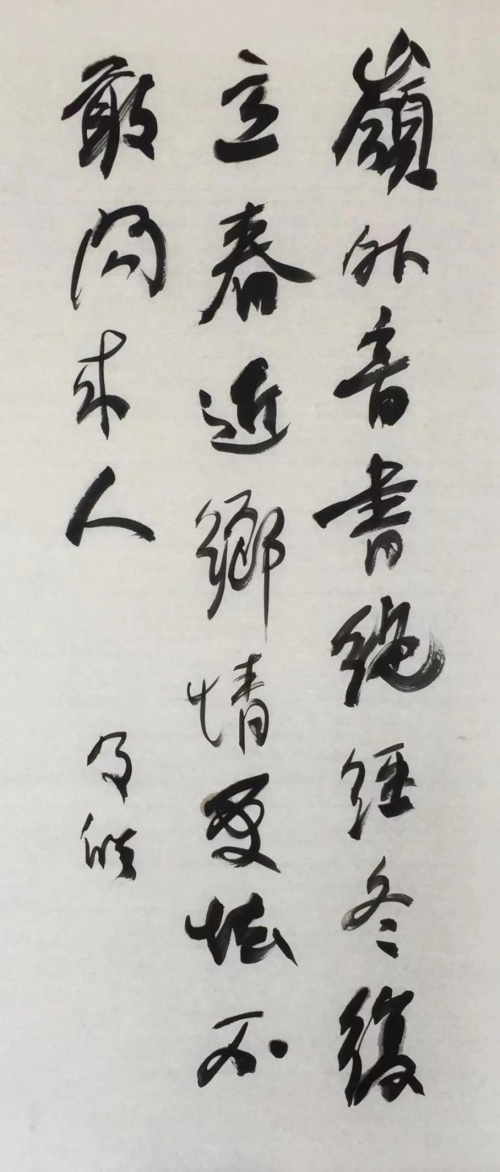 嶺外音書絶経冬復
立春近鄉情更怯不
敢問来人